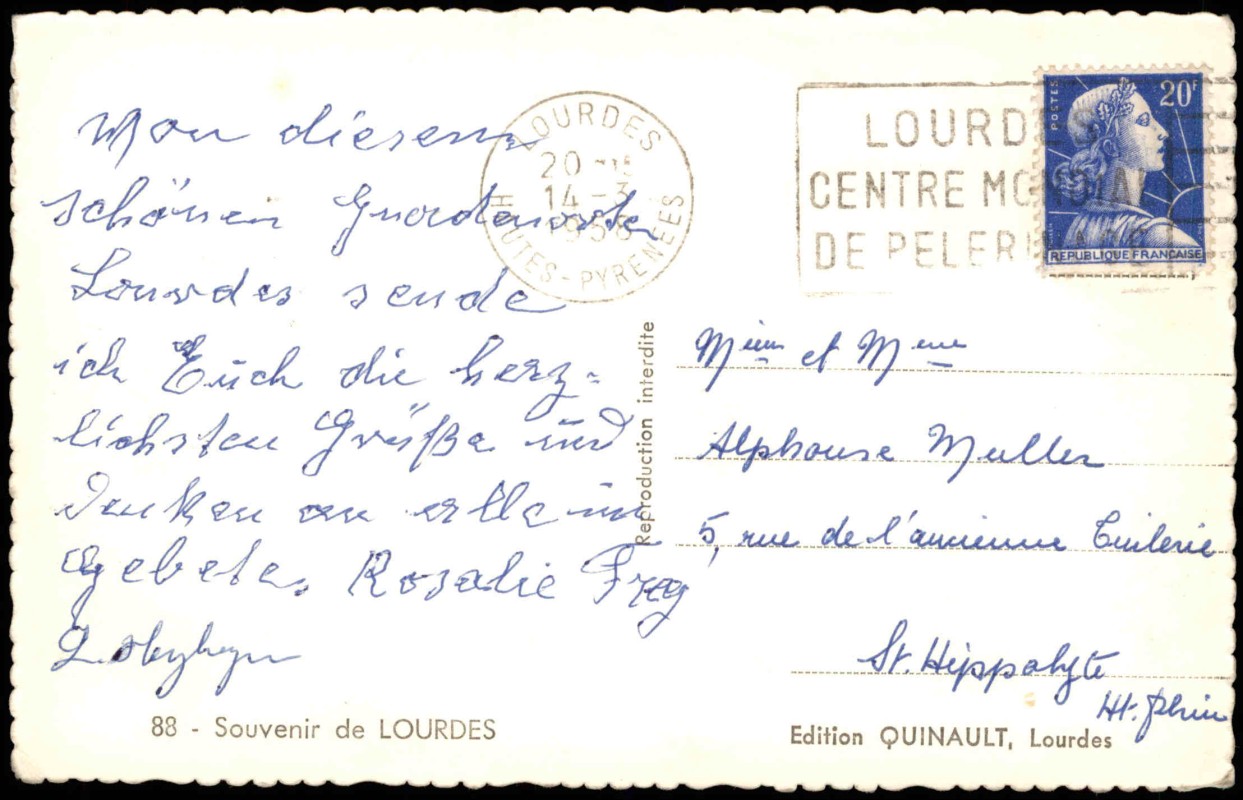 Von diesem
schönen Gnadenorte
Lourdes sende
ich Euch die herz-
lichsten Grüße und
Denken an alle im
gebete. Rosalie Frey
88 - Souvenir de LOURDES
LOURDES
20 -15
14 - 3
1958
HAUTES-PYRENEES
LOURDES
CENTRE MONDIAL
DE PELERINAGE
POSTES
20F
REPUBLIQUE FRANCAISE
Reproduction interdite
et Mme
Alphonse Muller
5, rue de l'ancienne Tuilerie
St. Hippolyte
Ht. Rhin
Edition QUINAULT, Lourdes